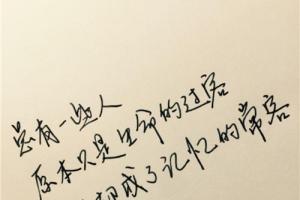 总有一些人
原本只是生命的过客
成了记忆的常客